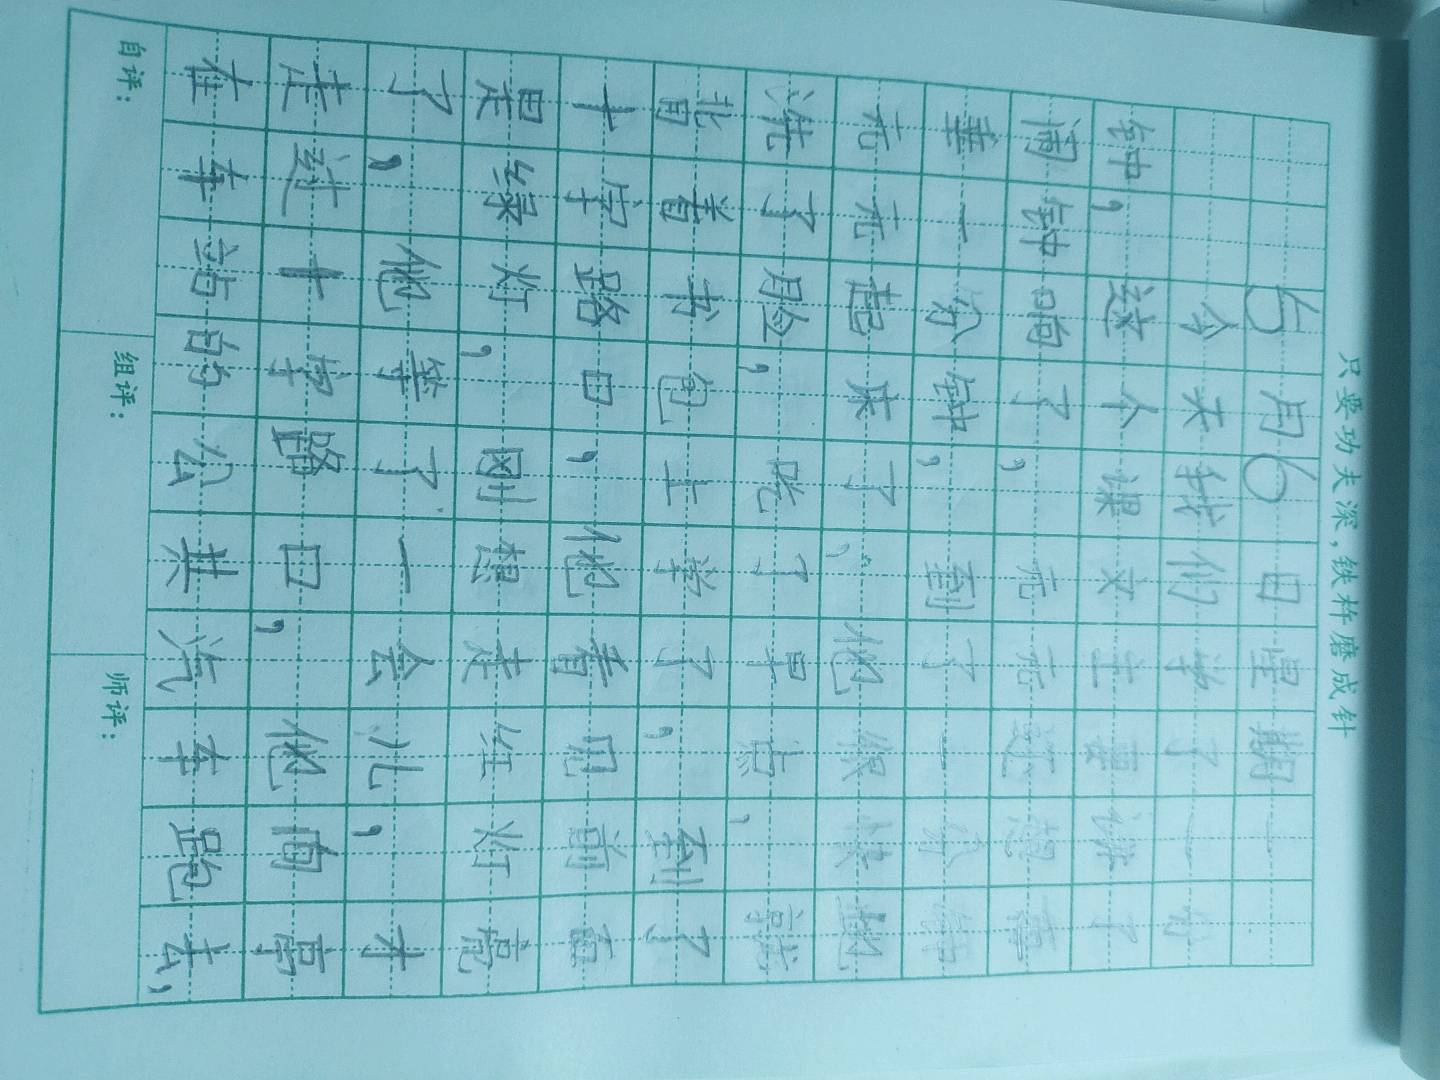 只要功夫深，铁杵磨成针
5月6日星期一
今天我们学了一分
钟，这个课文主要讲了
闹钟响了，元元还想再
睡一分钟，到了一分钟
元元起床了，他很快地
洗了脸，吃了早点，就
背着书包上学了，到了
十字路口，他看见前面
是绿灯，刚想走红灯亮
了，他等了一会儿，才
走过十字路口，他向亭
在车站的公共汽车跑去，
自评：
组评：
师评：